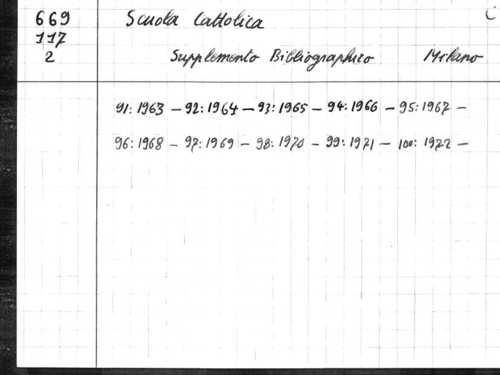 669 Scuola Cattolica C
117
2 Supplemento Bibliographico Milano
91: 1963 - 92: 1964 - 93: 1965 - 94: 1966 - 95: 1967 -
96: 1968 - 97: 1969 - 98: 1970 - 99: 1971 - 100: 1972 -